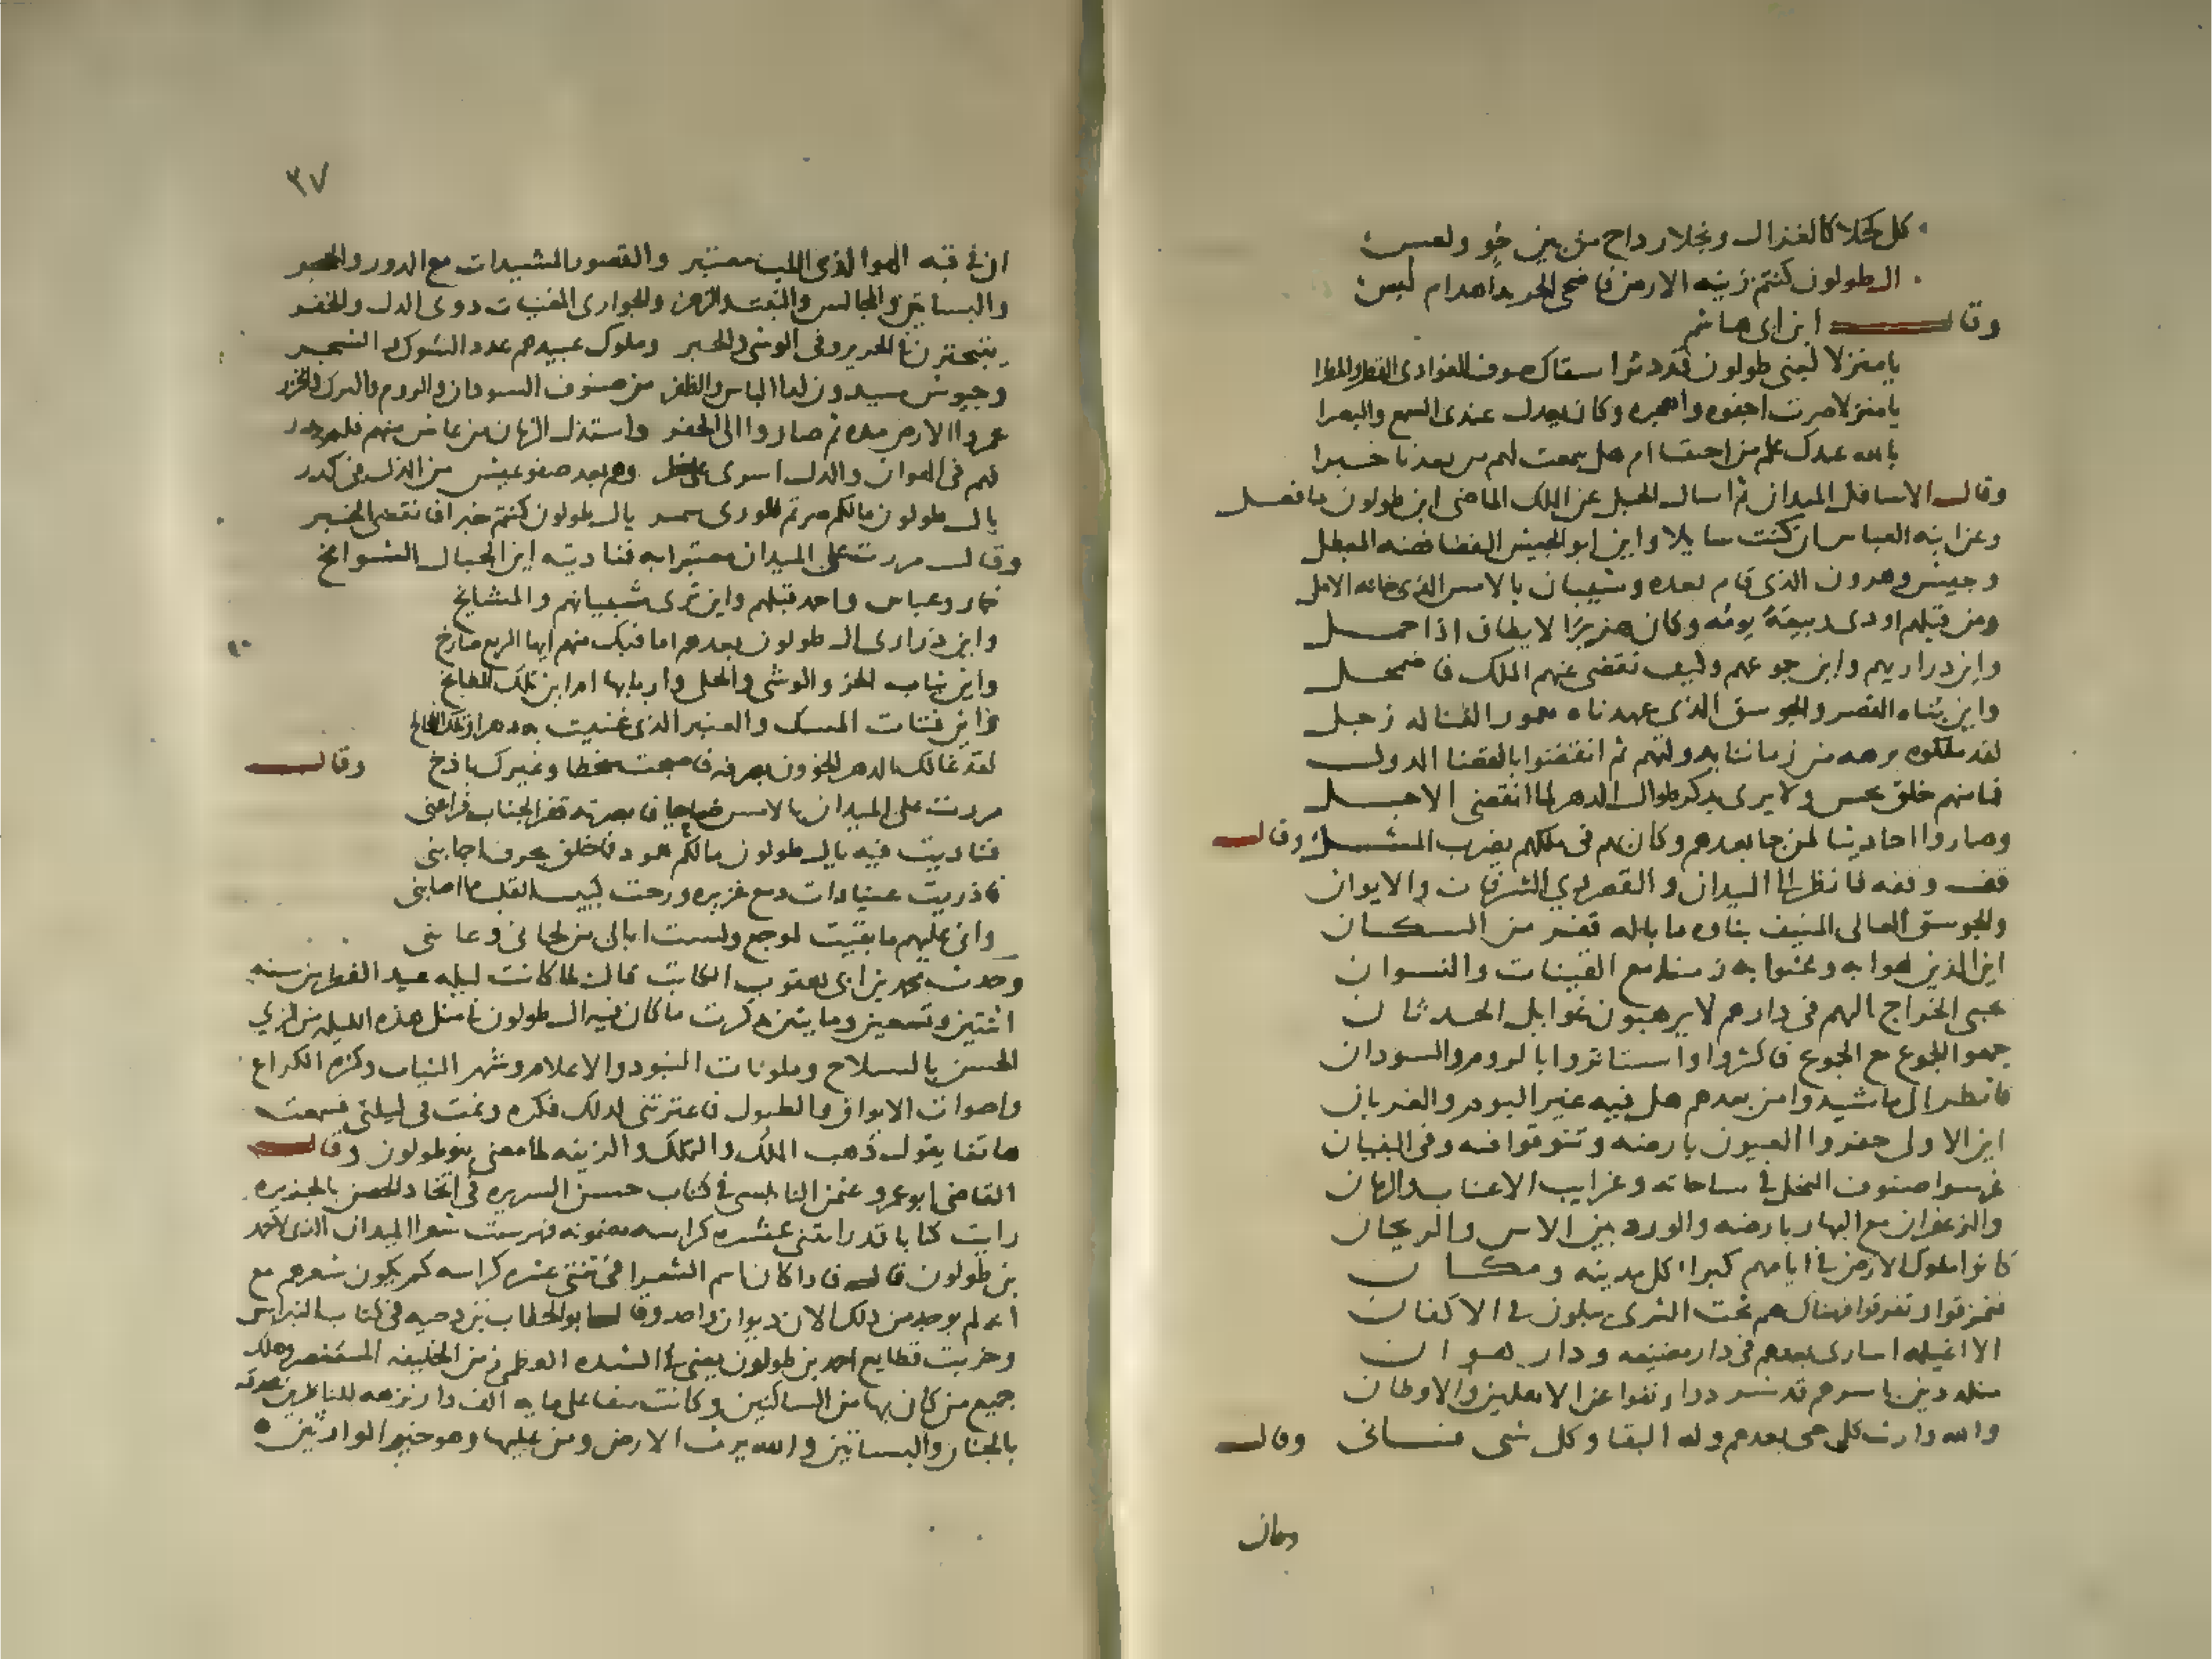 كل كحلا كالغزال ونجلا رداح من بين حو ولعس
ال طولون كنتم زينه الارض فاضحى الجديد اهدام لبس
وقال ابن ابى هاشم
يا منزلا لبنى طولون قد دثرا سقاك صوف الغوادى القطر والمطرا
يا منزلا صرت اجفوه واهجره وكان يعدل عندى السمع والبصرا
بالله عندك علم من احبتنا ام هل سمعت لهم من بعدنا خبرا
وقال الا سائل الميدان ثم اسال الجبل عن الملك الماضى ابن طولون ما فعل
وعن ابنه العباس ان كنت سايلا واين ابو الجيش الفضا فضه البطل
وجيش وهرون الذى قام بعده وشيبان بالامس الذى خانه الامل
ومن قبلهم اودى ربيعة يومه وكان هزبرا لا يطاق اذا حمل
واين دراريهم واين جموعهم وكيف تقضى عنهم الملك فاضمحل
واين بناه القصر والجوسق الذى عهدناه معمور الفنا له زجل
لقد ملكوه برهه من زماننا بدولتهم ثم انقضوا بالقضا الدول
فما منهم خلق يحس ولا يرى يذكر طوال الدهر لما انقضى الاجل
وصاروا احاديثا لمن جا بعدهم وكان بهم فى ملكهم يضرب المثل وقال
قف وقفه فانظر الى الميدان والقصر ذى الشرفات والايوان
والجوسق العالى المنيف بناوه ما باله قفر من السكان
اين الذين لهوا به وغنوا به زمنا مع القينات والنسوان
يجبى الخراج اليهم فى دارهم لا يرهبون غوايل الحدثان
جمعوا الجموع مع الجموع فاكثروا واستاثروا بالروم والسودان
فانظر الى ما شيدوا من بعدهم هل فيه غير البوم والغربان
اين الاولى حفروا العيون بارضه وتنوقوا فيه وفى البنيان
غرسوا صنوف النخل فى ساحاته وغرايب الاعناب والرمان
والزعفران مع البهار بارضه والورد بين الاس والريحان
كانوا ملوك الارض فى ايامهم كبرا كل مدينه ومكان
فتمزقوا وتفرقوا فهناك هم تحت الثرى يبلون فى الاكفان
الا اغيلمه اسارى بعدهم فى دار مضيعه ودار هوان
متلددين باسرهم قد شردوا ونفوا عن الاهلين والاوطان
والله وارث كل حى بعدهم وله البقا وكل شى فانى وقال
وقال
٣٧
ان فى قبه الهوا لذى اللب معتبر والقصور المشيدات مع الدور والحجر
والبساتين والمجالس والبيت والزهر والجوارى المغنيات ذوى الدل والخفر
يتبخترن فى الحرير وفى الوشى والحبر وملوك عبيدهم عدد الشوك والشجر
وجيوش مسيدون لدا الباس والظفر من صنوف السودان والروم والترك والخزر
عمروا الارض مده ثم صاروا الى الحفر واستذل الزمان من عاش منهم
فهم فى الهوان والذل اسرى على خطر وهم بعد صفو عيش من الذل فى كدر
يال طولون مالكم صرتم للورى سمر يال طولون كنتم خبرا فانقضى الخبر
وقال مررت على الميدان معتبرا به فناديته اين الجبال الشوامخ
خمار وعباس واحمد قبلهم واين ترى شبيانهم والمشايخ
واين ذرارى ال طولون بعدهم اما فيك منهم ايها الربع صارخ
واين ثياب الخز والوشى والحلى واربابها ام اين تلك المطابخ
واين فتات المسك والعنبر الذى غنيت به دهرا وتلك اللخالخ
لقد غالك الدهر الخؤون بصرفه فاصبحت منحطا وغيرك باذخ وقال
مررت على الميدان بالامس ضاحيا فابصرته قفر الجناب فراعنى
فناديت فيه يال طولون مالكم هود فما خلق بحرف اجابنى
فاذريت عينا ذات دمع غزيره ورحت كئيب القلب مما اصابنى
وانى عليهم ما بقيت لموجع ولست ابالى من لحانى وعابنى
وحدث محمد بن ابى يعقوب الكاتب قال لما كانت ليله عيد الفطر من سنه
اثنتين وتسعين ومايتين ذكرت ما كان فيه ال طولون فى مثل هذه الليله من الزى
الحسن بالسلاح وملونات البنود والاعلام وشهر الثياب وكثره الكراع
واصوات الابواق والطبول فاعترتنى لذلك فكره ونمت فى ليلتى فسمعت
هاتفا يقول ذهب الملك والتملك والزينه لما مضى بنو طولون وقال
القاضى ابو عمرو عثمن النابلسى فى كتاب حسن السريره فى اتخاذ الحصن بالجزيره
رايت كتابا قدر اثنتى عشره كراسه مضمونه فهرست شعرا الميدان الذى لاحمد
بن طولون قال فاذا كان اسم الشعرا فى ثنتى عشره كراسه كم يكون شعرهم مع
انه لم يوجد من ذلك الان ديوان واحد وقال ابو الخطاب بن دحيه فى كتاب النبراس
وخربت قطايع احمد بن طولون يعنى فى الشده العظمى زمن الخليفه المستنصر وهلك
جميع من كان بها من الساكنين وكانت نيفا على مايه الف دار نزهه للناظرين محدقه
بالجنان والبساتين والله يرث الارض ومن عليها وهو خير الوارثين